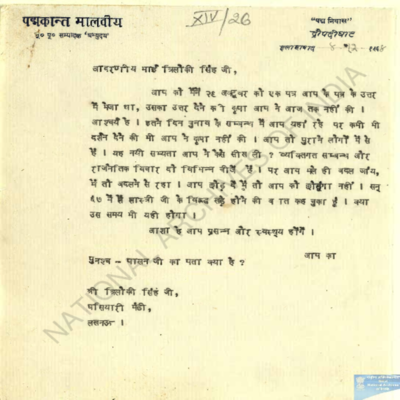 पद्मकान्त मालवीय
भू० पू० सम्पादक 'अभ्युदय'
XIV/26
"पद्म निवास"
द्रौपदीघाट
इलाहाबाद
आदरणीय भाई त्रिलोकी सिंह जी,
आप को मैंने २६ अक्टूबर को एक पत्र आप के पत्र के उत्तर
में भेजा था, उसका उत्तर देने की कृपा आप ने आज तक नहीं की ।
आश्चर्य है । इतने दिन चुनाव के सम्बन्ध में आप यहां रहे पर कभी भी
दर्शन देने की भी आप ने कृपा नहीं की । आप तो पुराने लोगों में से
हैं । यह नयी सभ्यता आप ने कैसे सीख ली ? व्यक्तिगत सम्बन्ध और
राजनैतिक विचार दो विभिन्न चीजें हैं । पर आप भले ही बदल जांय,
मैं तो बदलने से रहा । आप छोड़ दें मैं तो आप को छोडूंगा नहीं । सन्
६७ में मैं शास्त्री जी के विरुद्ध खड़े होने की बात कह चुका हूँ । क्या
उस समय भी यही होगा ।
आशा है आप प्रसन्न और स्वस्थ होंगे ।
आप का
पुनश्च - पासन जी का पता क्या है ?
श्री त्रिलोकी सिंह जी,
पानदरीबा मंडी,
लखनऊ ।
NATIONAL ARCHIVES OF INDIA